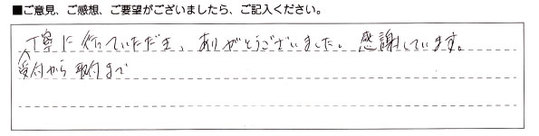 ■ご意見、ご感想、ご要望がございましたら、ご記入ください。
丁寧に行っていただき、ありがとうございました。感謝しています。
受付から取付まで